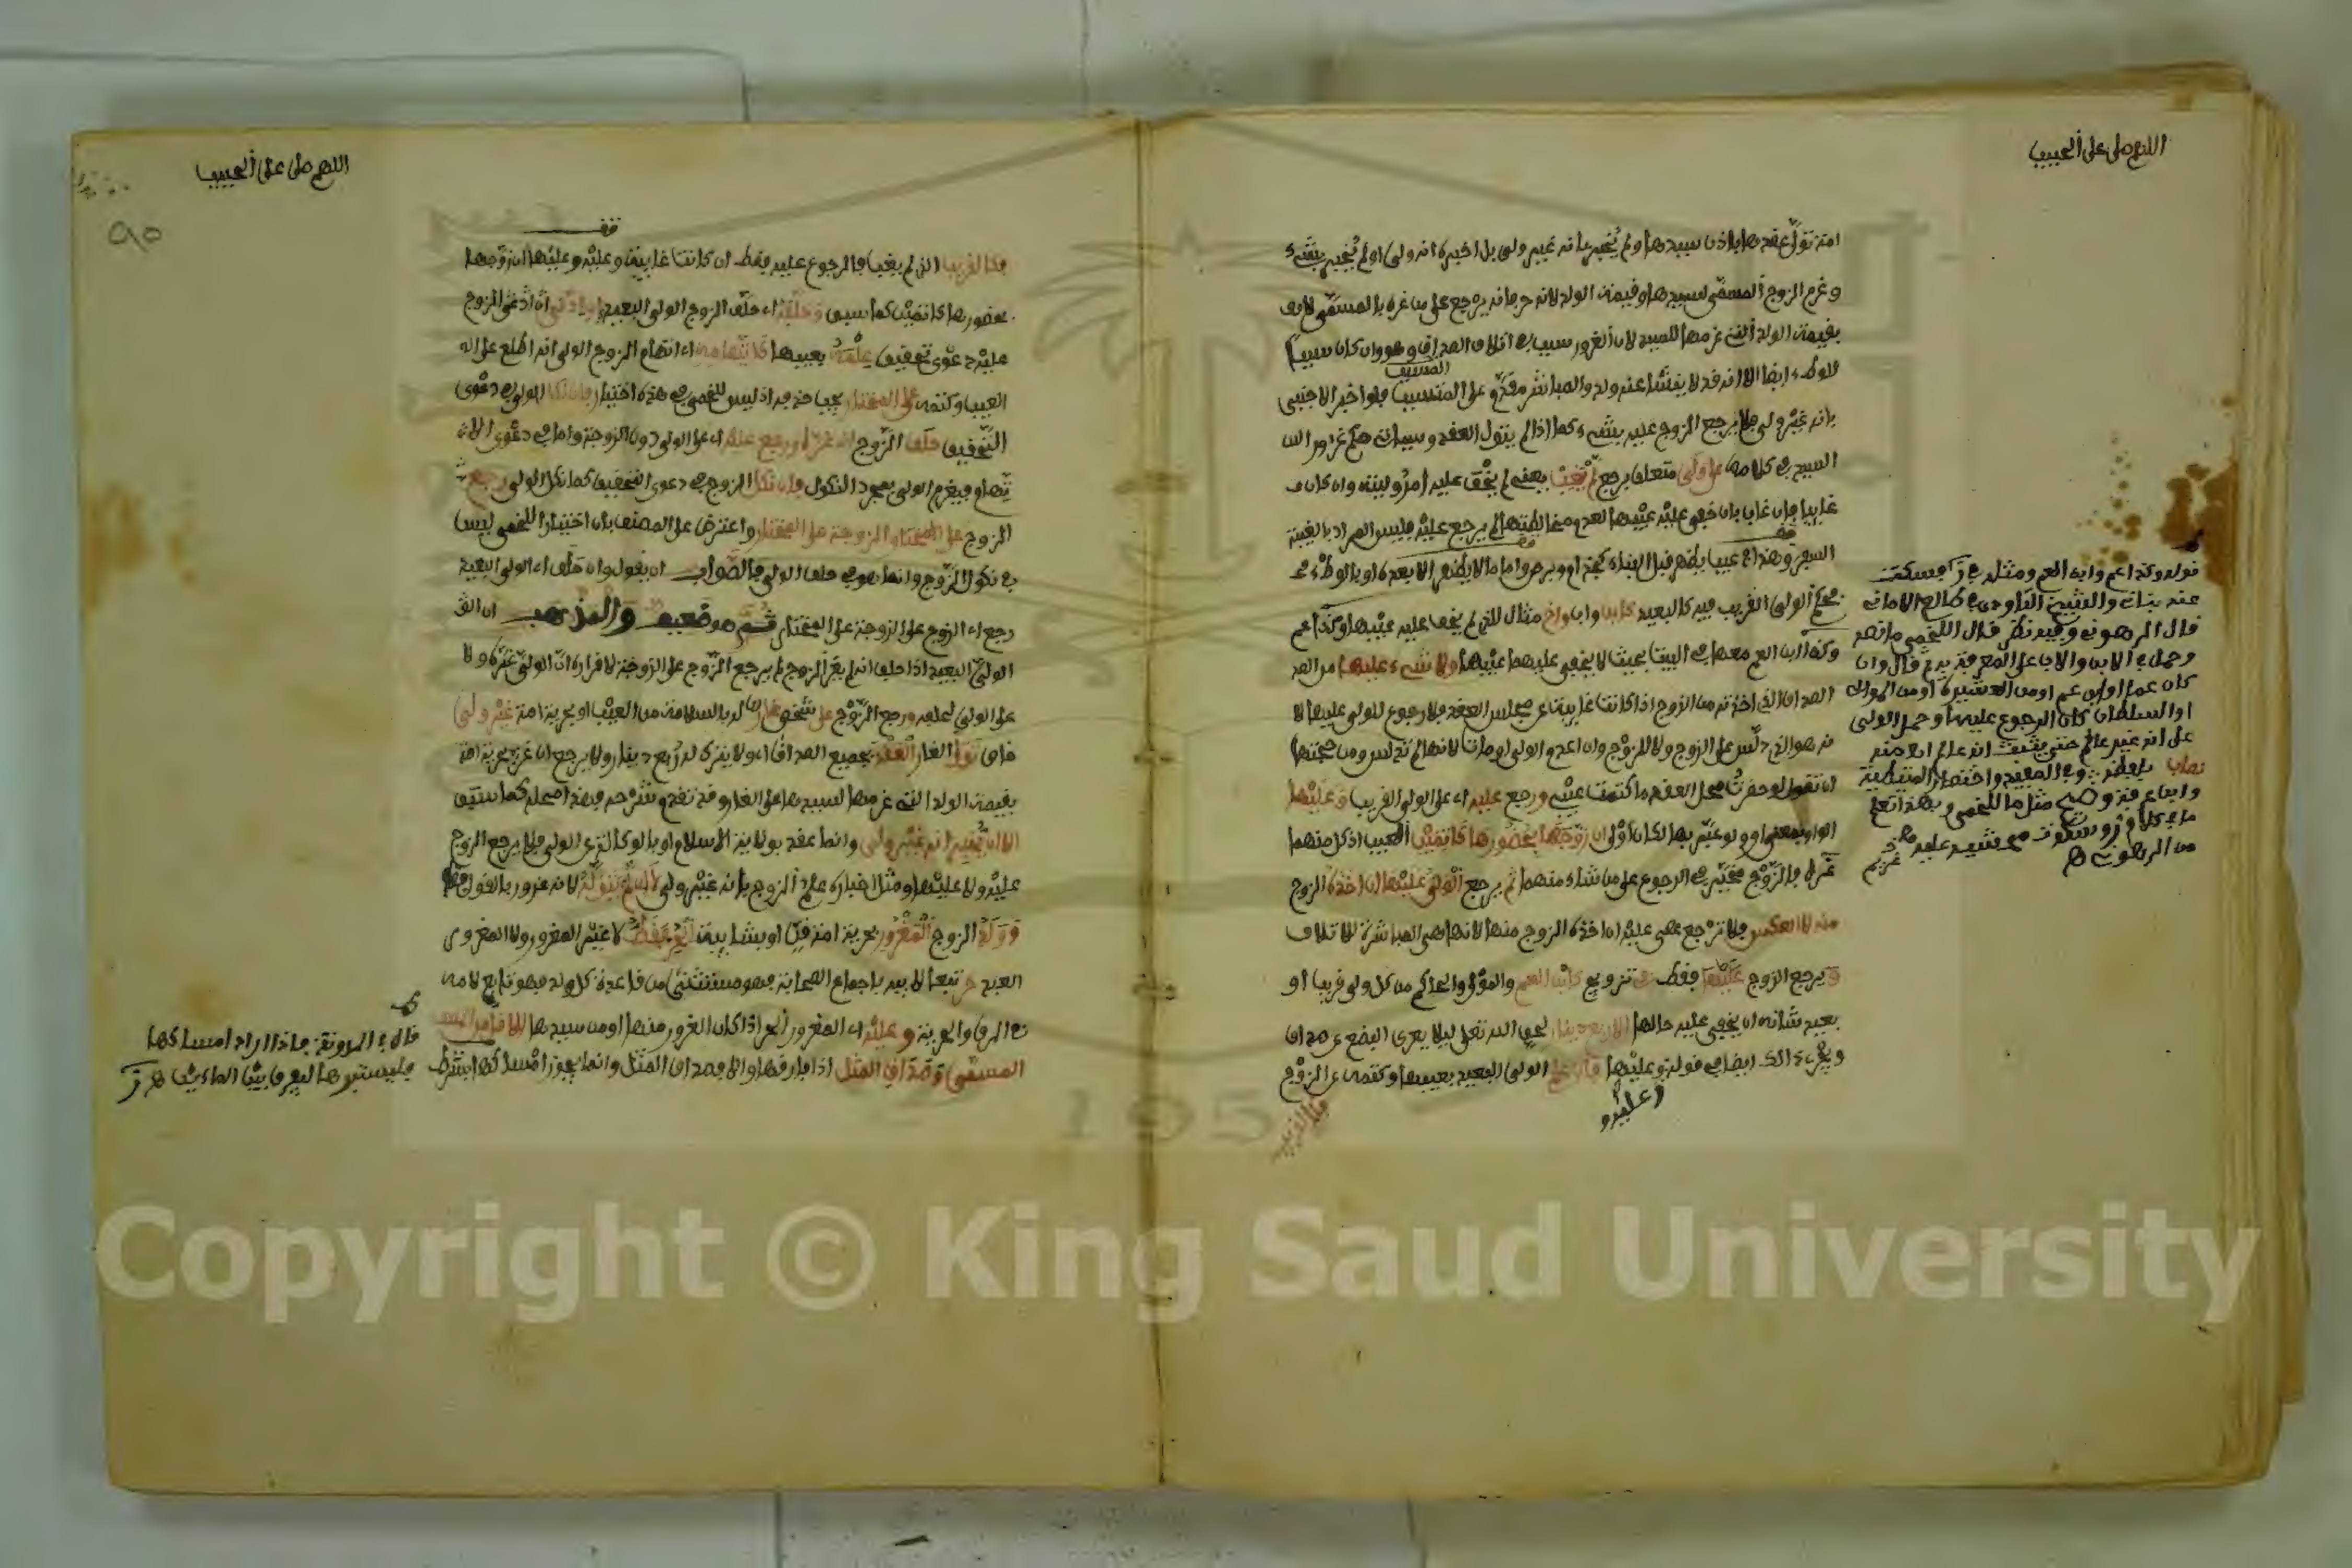 اللهم صل على الحبيب
امة تولى عقدها باذن سيدها ولم يخبر بانه غير ولي بل اخبره انه ولي او لم يخبر بشيء
وغرم الزوج المسمى لسيدها وقيمة الولد لانه حر فانه يرجع على من غره بالمسمى لا
بقيمة الولد التي غرمها للسيد لان الغرور سبب في اتلاف الصداق وهو وان كان سببا
للوطء ايضا الا انه قد لا ينشا عنه ولد والمباشر مقدم على المتسبب فلو اخبر الاجنبي
بانه غير ولي فلا يرجع الزوج عليه بشيء كما اذا لم يتول العقد وسيات حكم غرور
السيد في كلامه على ولي متعلق برجع لم يغب بعقد لم يخف عليه امر وليته وان كان
غايبا فان غاب بان خفي عليه عيبها لعدم مخالطته لها لم يرجع عليه فليس المراد بالغيبة
السفر وهذا في عيب يظهر قبل البناء كجذام وبرص واما ما لا يظهر الا بعده او بالوطء
فحكم الولي القريب فيه كالبعيد كاب وابن واخ مثال للذي لم يخف عليه عيبها وكذا عم
وكذا ابن العم معها في البيت بحيث لا يخفى عليهما عيبها ولا شيء عليها من
الصداق الذي اخذته من الزوج اذا كانت غايبة عن مجلس العقد فلا رجوع للولي عليها
هو الذي دلس على الزوج ولا للزوج وان اعدم الولي او مات لانها لم تدلس ومن حجتها
ان تقول لو حضرت محل العقد ما كتمت عيبي ورجع عليه اي على الولي القريب وعليها
الواو بمعنى او ولو عبر بها لكان اولى ان زوجها بحضورها كاتمين العيب اذ كل منهما
غره فالزوج مخير في الرجوع على من شاء منهما ثم يرجع الولي عليها ان اخذه الزوج
منه لا العكس فلا ترجع هي عليه ان اخذه الزوج منها لانها هي المباشرة للاتلاف
ويرجع الزوج عليها فقط في تزويج كابن العم والمولى والحاكم من كل ولي قريب او
بعيد شانه ان يخفى عليه حالها الا ربع دينار لحق الله تعلى ليلا يعرى البضع عن صداق
ويجري ذلك ايضا في قوله وعليها فان علم الولي البعيد بعيبها وكتمه عن الزوج
وعليه و
فكالقريب
قوله وكذا عم وابن العم ومثله في ز وسكت
عنه بناني والشيخ التاودي في طالع الاماني
قال الرهوني وفيه نظر قال اللخمي ما نصه
وحمل في الابن والاب على المعرفة ثم قال وان
كان عما او ابن عم او من العشيرة او من الموالي
او السلطان كان الرجوع عليها وحمل الولي
على انه غير عالم حتى يثبت انه عالم اه منه
بلفظه وفي المفيد واختصار المتيطية
وابن عرفة مثل ما للخمي وبهذا تعلم
ما في كلام ز وسكوت محشيه عليه
من الرهوني اه
اللهم صل على الحبيب
٩٥
قف
فكالقريب الذي لم يغب فالرجوع عليه فقط ان كانت غايبة وعليه وعليها ان زوجها
بحضورها كاتمين كما سبق وحلفه اي حلف الزوج الولي البعيد ان ادعى الزوج
عليه دعوى تحقيق علمه بعيبها كاتهامه اي اتهام الزوج الولي انه اطلع على
العيب وكتمه على المختار يجب حذفه اذ ليس للخمي في هذه اختيار فان نكل الولي في دعوى
التحقيق حلف الزوج انه غره ورجع عليه اي على الولي دون الزوجة واما في دعوى
الاتهام فيغرم الولي بمجرد النكول فان نكل الزوج في دعوى التحقيق كما نكل الولي رجع
الزوج على الزوجة على المختار واعترض على المصنف بان اختيار اللخمي ليس
في نكول الزوج وانما هو في حلف الولي فالصواب ان يقول وان حلف اي الولي البعيد
رجع اي الزوج على الزوجة على المختار ثم هو ضعيف والمذهب ان
الولي البعيد اذا حلف انه لم يغر الزوج لم يرجع الزوج على الزوجة لاقراره ان الولي غره ولا
على الولي لحلفه ورجع الزوج على شخص غار له بالسلامة من العيب او بحرية امة غير ولي
خاص تولى الغار العقد بجميع الصداق اي ولا يترك له ربع دينار ولا يرجع ان غره بحرية امة
بقيمة الولد التي غرمها لسيدها على الغار وقد تقدم شرحه كما سبق
الا ان يخبر انه غير ولي وانما عقد بولاية الاسلام او بالوكالة عن الولي فلا يرجع الزوج
عليه ولا عليها ومثل اخباره علم الزوج بانه غير ولي لا ان لم يتوله لانه غرور بالقول
وولد الزوج المغرور بحرية امة قن او بشايبة الحر فقط لا غير المغرور ولا المغرور
العبد حر تبعا لابيه باجماع الصحابة فهو مستثنى من قاعدة كل ولد فهو تابع لامه
في الرق والحرية وعليه اي المغرور الحر اذا كان الغرور منها او من سيدها الاقل من
المسمى وصداق المثل اذا فارقها والا فصداق المثل وانما يجوز امساكها بشرط
قال في المدونة فاذا اراد امساكها
فليستبرها ليفرق بين الماءين اه ز
Copyright © King Saud University
195